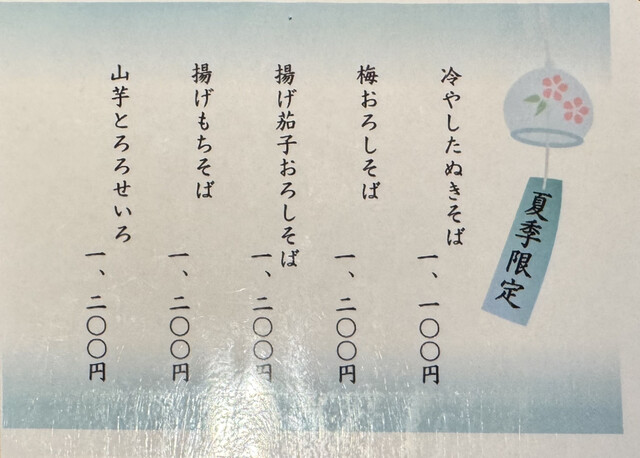 夏季限定
冷やしたぬきそば
一、一〇〇円
梅おろしそば
一、二〇〇円
揚げ茄子おろしそば
一、二〇〇円
揚げもちそば
一、二〇〇円
山芋とろろせいろ
一、二〇〇円